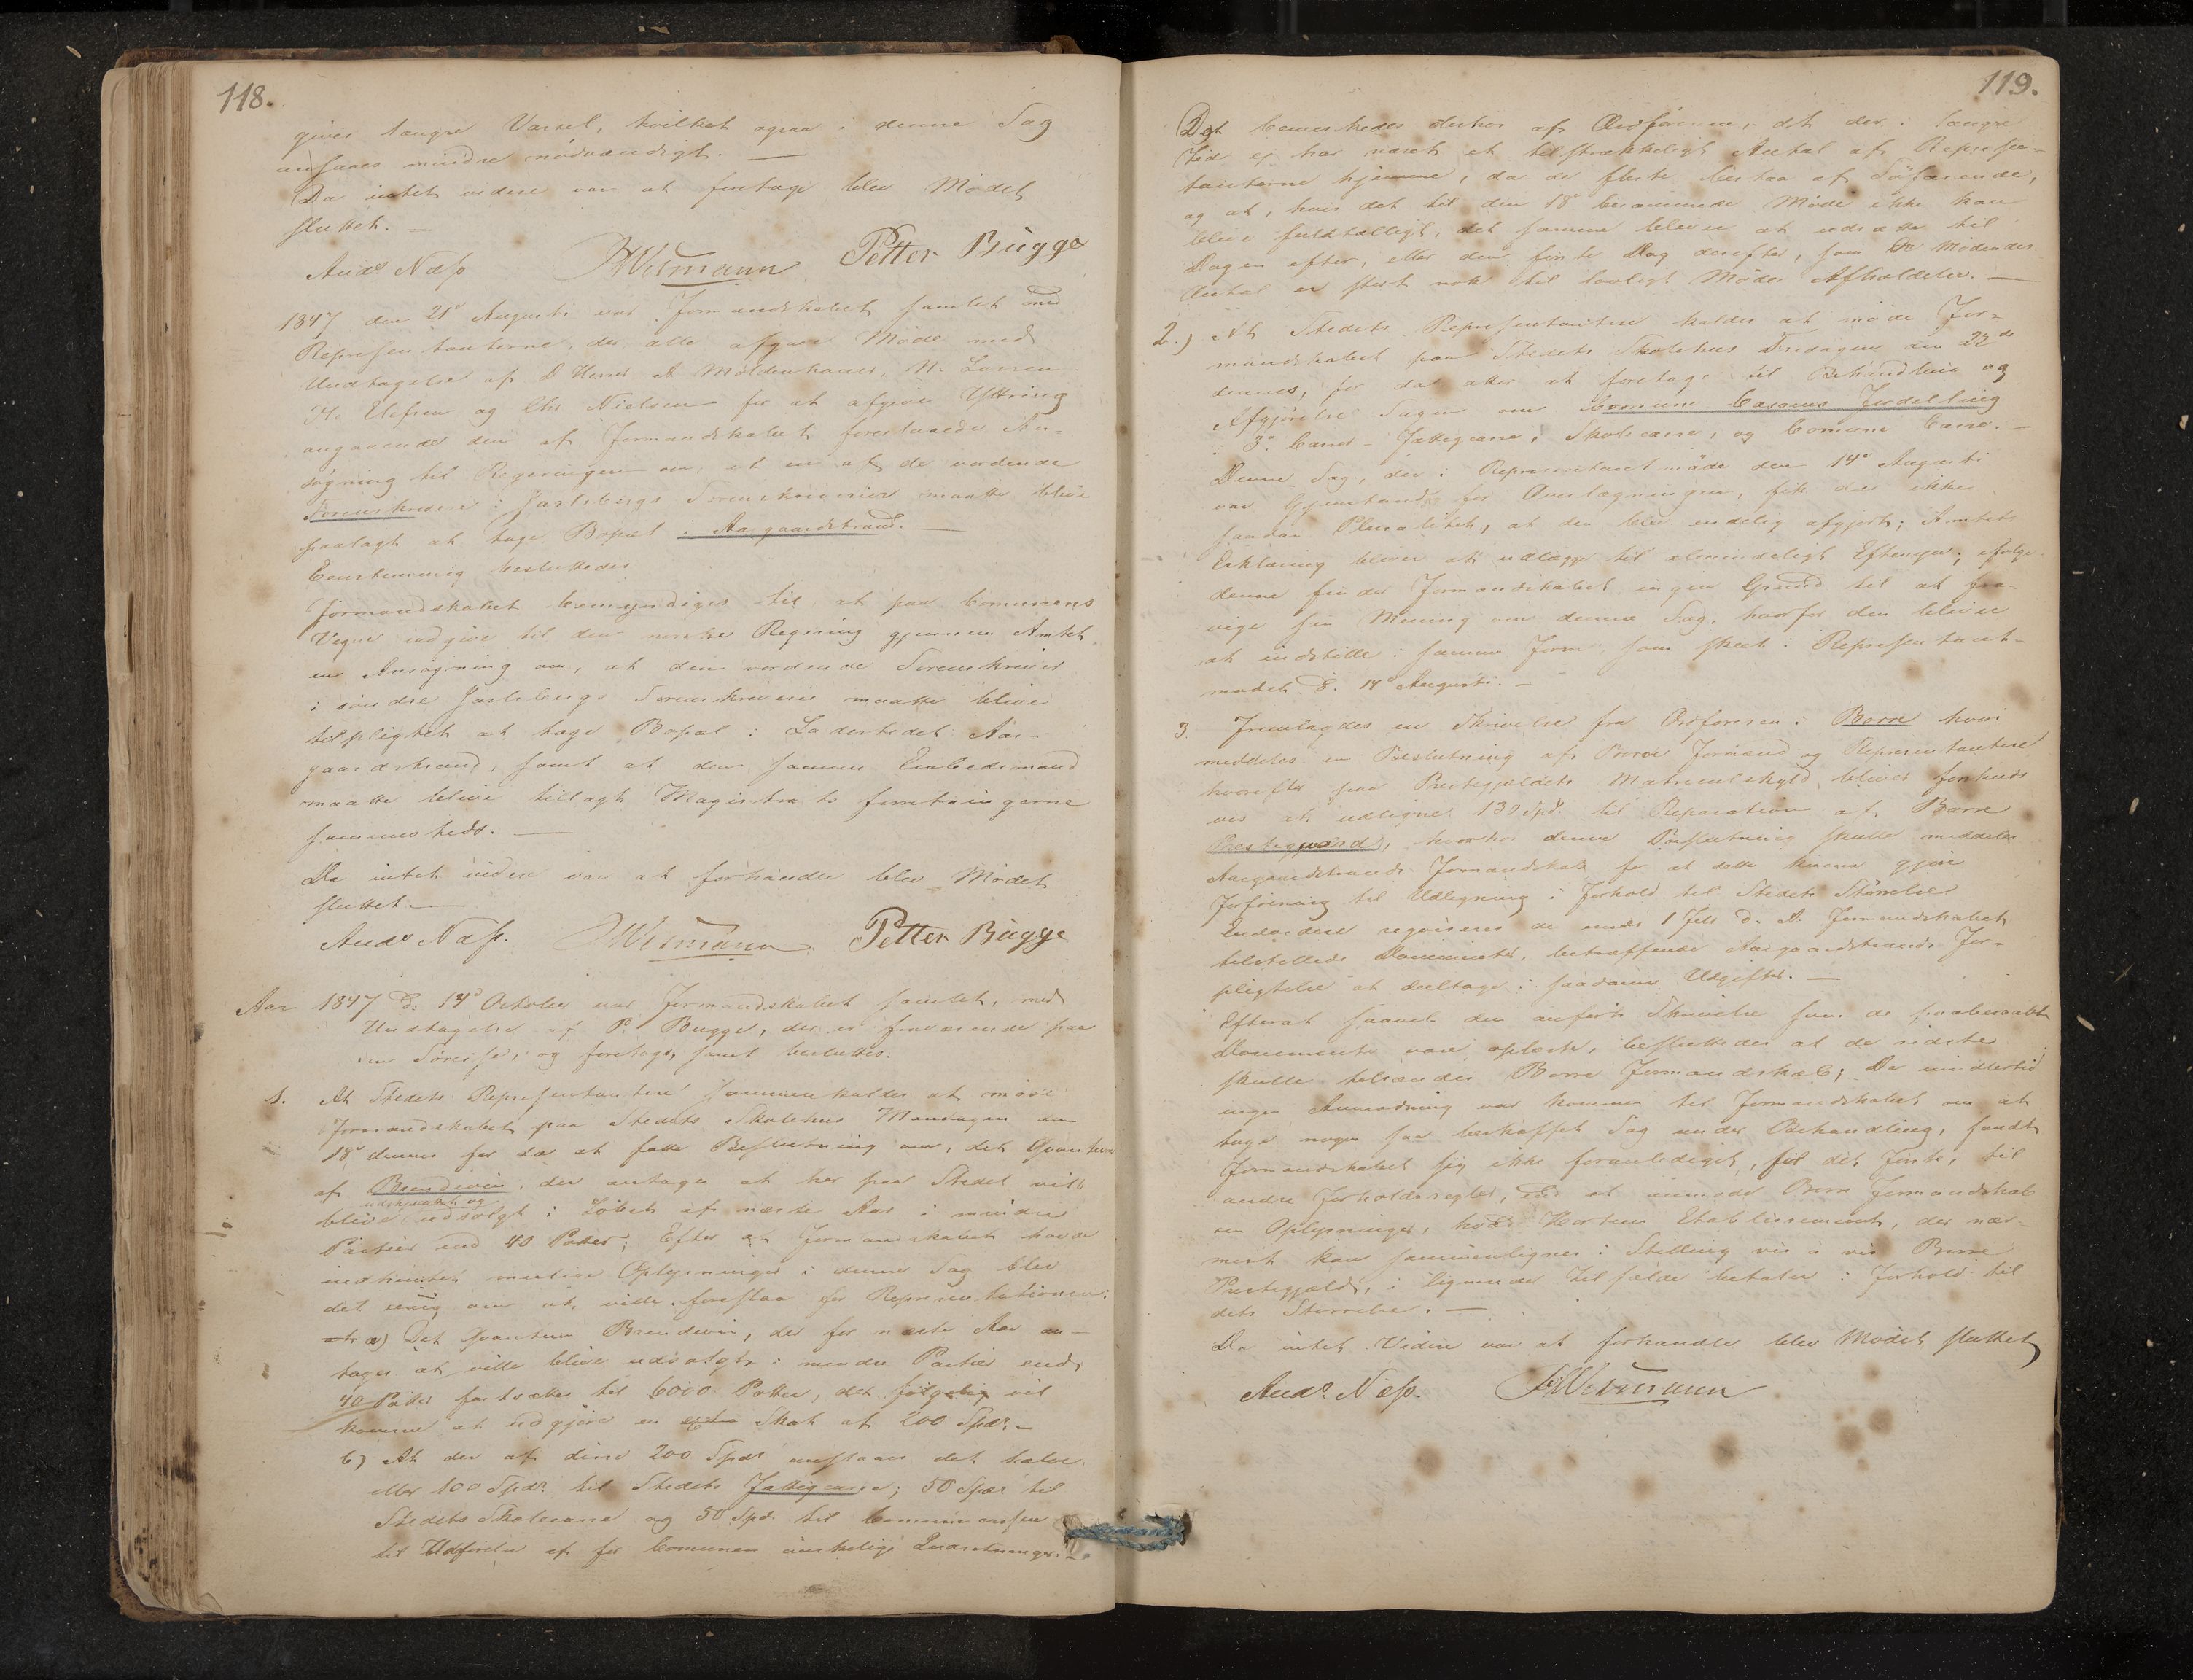 118.
gives længre Varsel, hvilket ogsaa i denne Sag
ansaaes mindre nødvændigt. —
Da intet videre var at foretage blev Mødet
sluttet. —
Ands Næss Petter Bugge
1847 den 21de Augusti var Formandskabet samlet med
Repræsentanterne, der alle afgave Møde med
Undtagelse af D Herrer Moldenhauer, N. Larsen
og Chr Nielsen for at afgive Yttring
angaaende den af Formandskabet foreslaaede An-
søgning til Regjeringen om, at en af de vordende
Sorenskrivere i Jarlsbergs Sorenskriverier maatte blive
paalagt at tage Bopæl i Aasgaardstrand. —
Eenstemmig besluttedes
Formandskabet bemyndiges til at paa Communens
Vegne indgive til den norske Regjering gjennem Amtet
en Ansøgning om, at den vordende Sorenskriver
i søndre Jarlsbergs Sorenskriverie maatte blive
tilpligtet at tage Bopæl i Ladestedet Aas-
gaardstrand, samt at den samme Embedsmand
maatte blive tillagt Magistrats forretningerne
sammesteds. —
Da intet videre var at forhandle blev Mødet
sluttet. —
Ands Næss. Petter Bugge
Aar 1847 d. 14de October var Formandskabet samlet, med
Undtagelse af P. Bugge, der er fraværende paa
en Søreise, og foretoges samt besluttes:
1. At Stedets Repræsentantere sammenkaldes at møde
Formandskabet paa Stedets Skolehus Mandagen den
18de dennes for da at fatte Beslutning om, det Qvantum
af Brændeviin, der antages at her paa Stedet vill
udskjænket og
blive udsolgt i Løbet af næste Aar i mindre
Partier end 40 Potter; Efter at Formandskabet havde
indhentet mulige Oplysninger i denne Sag blev
det enig om at ville foreslaa for Repræsentationen:
at a) Det Qvantum Brændeviin, der for næste Aar an-
tages at ville blive udsolgt i mindre Partier end
40 Potter fastsættes til 6000 Potter, det følgelig vil
komme at udgjøre en Skat af 200 Spdr. —
b) At der af disse 200 Spdr anslaaes det halve
eller 100 Spdr. til Stedets Fattigcasse; 50 Spdr til
Stedets Skolecasse og 50 Spdr. til Communecassen
til Udførelse af for Comunen ønskelige Indretninger. —
119.
Det bemærkedes derhos af Ordføreren, at der i længre
Tid ej har været et tilstrækkeligt Antal af Repræsen-
tanterne hjemme, da de fleste bestaa af Søfarende,
og at, hvis det til den 18de berammede Møde ikke kan
blive fuldtalligt, det samme bliver at udsætte til
Dagen efter, eller den første Dag derefter, som De Mødendes
Antal er stort nok til lovligt Mødes Afholdelse. —
2.) At Stedets Repræsentantere kaldes at møde For-
mandskabet paa Stedets Skolehus den 22de
dennes, for da atter at foretage til Behandling og
Afgjørelse Sagen om Comune Casens Inddeling
i 3de Casser – Fattigcasse, Skolecasse, og Comune Casse. —
Denne Sag, der i Repræsentantmøde den 14de Augusti
var Gjenstand for Overlægningen, fik der ikke
saadan Pluralitet, at den blev endelig afgjort; Amtets
Erklæring bliver at udlægge til almindeligt Eftersyn; ifølge
denne finder Formandskabet ingen Grund til at fra-
vige sin Mening om denne Sag, hvorfor den bliver
at indstille i samme Form som skeet i Repræsentant-
mødet d. 14de Augusti. —
3. Fremlagdes en Skrivelse fra Ordføreren i Borre hvori
meddeles en Beslutning af Borre Formænd og Repræsentantere
hvorefter paa Præstegjeldets Matriculskyld bliver
at udligne 130 Spd. til Reparation af Borre
Præstegaard, hvorhos denne Beslutning skulle meddeles
Aasgaardstrands Formandskab for at dette kunne gjøre
Forføining til Udligning i Forhold til Stedets Størrelse
Endvidere reqvireres de under 1 Juli d. A. Formandskabet
tilstillede Documenter, betræffende Aasgaardstrands For-
pligtelse at deeltage i saadanne Udgifter. —
Efterat saavel den anførte Skrivelse som de paaberaabte
Documenter vare oplæste, besluttedes at de sidste
skulle tilsendes Borre Formandskab; Da imidlertid
ingen Anmodning var kommen til Formandskabet om at
tage nogen saa beskaffet Sag under Behandling, fandt
Formandskabet sig ikke foranlediget, for det første, til
andre Forholdsregler, end at anmode Borre Formandskab
om Oplysninger, hvad Horten Etablissement, der nær-
mest kan sammenlignes i Stilling vis a vis Borre
Præstegjæld, i lignende Tilfælde betaler i Forhold til
dets Størrelse. —
Da intet Videre var at forhandle blev Mødet sluttet
Ands. Næss.